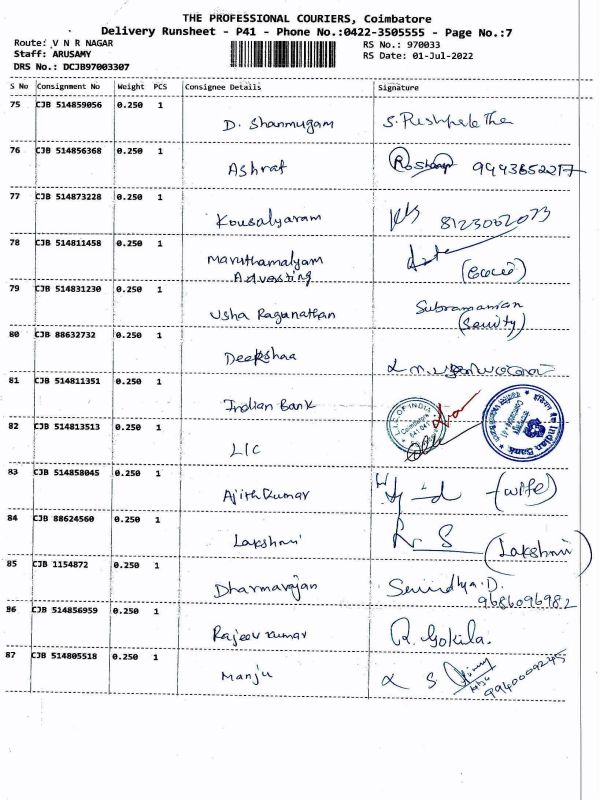 THE PROFESSIONAL COURIERS, Coimbatore
Delivery Runsheet - P41 - Phone No.:0422-3505555 - Page No.:7
Route: V N R NAGAR RS No.: 970033
Staff: ARUSAMY RS Date: 01-Jul-2022
DRS No.: DCJB97003307
S No Consignment No Weight PCS Consignee Details Signature
75 CJB 514859056 0.250 1
D. Shanmugam
76 CJB 514856368 0.250 1
Ashraf
77 CJB 514873228 0.250 1
Kousalyaram
78 CJB 514811458 0.250 1
Maruthamalyam
Advosting
79 CJB 514831230 0.250 1
Usha Ragunathan Subramanian
80 CJB 88632732 0.250 1
Deekshaa
81 CJB 514811351 0.250 1
Indian Bank L.I.C OF INDIA Indian Bank
82 CJB 514813513 0.250 1
LIC
83 CJB 514858045 0.250 1
Ajithkumar (wife)
84 CJB 88624560 0.250 1
Lakshmi (Lakshmi)
85 CJB 1154872 0.250 1
Dharmarajan
9686096982
86 CJB 514856959 0.250 1
Rajeev kumar R. Gokila.
87 CJB 514805518 0.250 1
Manju